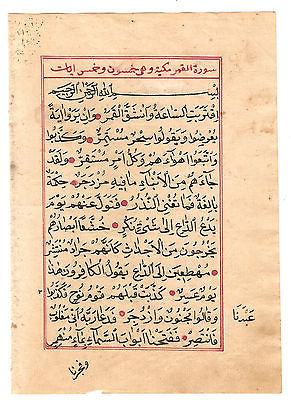 سورة القمر مكية وهي خمسون وخمس ايات
بسم الله الرحمن الرحيم
اقتربت الساعة وانشق القمر وان يروا اية
يعرضوا ويقولوا سحر مستمر وكذبوا
واتبعوا اهواءهم وكل امر مستقر ولقد
جاءهم من الانباء ما فيه مزدجر حكمة
بالغة فما تغن النذر فتول عنهم يوم
يدع الداع الى شيء نكر خشعا ابصارهم
يخرجون من الاجداث كانهم جراد منتشر
مهطعين الى الداع يقول الكافرون هذا
يوم عسر كذبت قبلهم قوم نوح فكذبوا
عبدنا
وقالوا مجنون وازدجر فدعا ربه اني مغلوب
فانتصر ففتحنا ابواب السماء بماء منهمر
وفجرنا